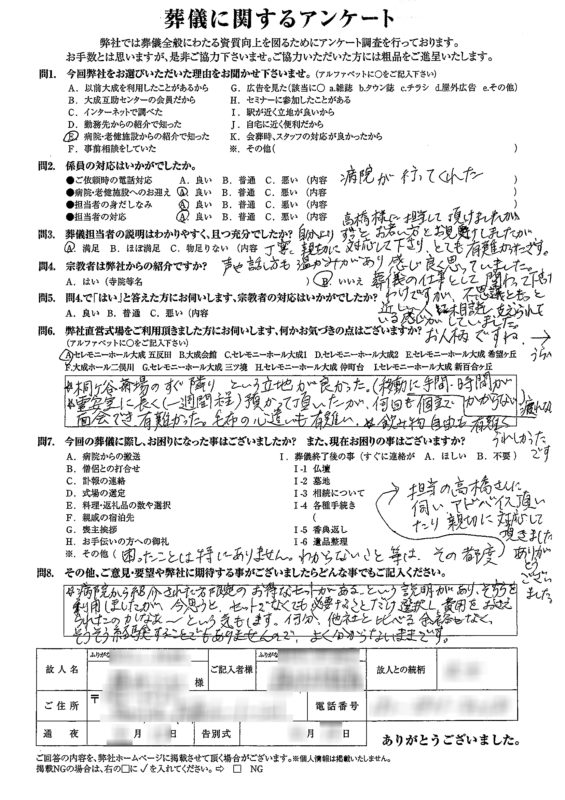 葬儀に関するアンケート
弊社では葬儀全般にわたる資質向上を図るためにアンケート調査を行っております。
お手数とは思いますが、是非ご協力下さいませ。ご協力いただいた方には粗品をご進呈いたします。
問1. 今回弊社をお選びいただいた理由をお聞かせ下さいませ。(アルファベットに○をご記入下さい)
A. 以前大成を利用したことがあるから
G. 広告を見た(該当に○ a.雑誌 b.タウン誌 c.チラシ d.屋外広告 e.その他)
B. 大成互助センターの会員だから
H. セミナーに参加したことがある
C. インターネットで調べた
I. 駅が近く立地が良いから
D. 勤務先からの紹介で知った
J. 自宅に近く便利だから
E. 病院・老健施設からの紹介で知った
K. 会葬時、スタッフの対応が良かったから
F. 事前相談をしていた
※. その他( )
問2. 係員の対応はいかがでしたか。
●ご依頼時の電話対応 A. 良い B. 普通 C. 悪い (内容 病院が行ってくれた )
●病院・老健施設へのお迎え A. 良い B. 普通 C. 悪い (内容 )
●担当者の身だしなみ A. 良い B. 普通 C. 悪い (内容 )
●担当者の対応 A. 良い B. 普通 C. 悪い (内容
高橋様に担当して頂けましたが
問3. 葬儀担当者の説明はわかりやすく、且つ充分でしたか?
A. 満足 B. ほぼ満足 C. 物足りない (内容 丁寧に親切に対応して下り、とても有難かったです。
声や話し方も温かみがあり感じ良く思っていました。
問4. 宗教者は弊社からの紹介ですか?
A. はい (寺院等名 ) B. いいえ
葬儀の仕事として関わって下さる
わけですが、不思議ともっと
問5. 問4で「はい」と答えた方にお伺いします、宗教者の対応はいかがでしたか?
A. 良い B. 普通 C. 悪い (内容
いる感じがしていました。
お人柄ですね。
問6. 弊社直営式場をご利用頂きました方にお伺いします、何かお気づきの点はございますか?
(アルファベットに○をご記入下さい)
A.セレモニーホール大成 五反田 B.大成会館 C.セレモニーホール大成1 D.セレモニーホール大成2 E.セレモニーホール大成 希望ヶ丘
F.大成ホール二俣川 G.セレモニーホール大成 三ツ境 H.セレモニーホール大成 仲町台 I.セレモニーホール大成 新百合ヶ丘
*桐ヶ谷斎場のすぐ隣り という立地が良かった。(移動に手間・時間が
かからない)
*霊安室に長く(一週間程)預かって頂いたが、何回も個室で
面会でき有難かった。毛布の心遣いも有難い。*飲み物自由も有難く
うれしかった
です
問7. 今回の葬儀に際し、お困りになった事はございましたか? また、現在お困りの事はございますか?
A. 病院からの搬送
I. 葬儀終了後の事 (すぐに連絡が A. ほしい B. 不要)
B. 僧侶との打合せ
I-1 仏壇
C. 訃報の連絡
I-2 墓地
D. 式場の選定
I-3 相続について
E. 料理・返礼品の数や選択
I-4 各種手続き
F. 親戚の宿泊先
(
G. 喪主挨拶
I-5 香典返し
H. お手伝いの方への御礼
I-6 遺品整理
※. その他 (困ったことは特にありません。わからないこと等は、その都度)
担当の高橋さんに
伺い、アドバイス頂い
たり親切に対応して
頂きました
ありが
とう
ござい
ました。
問8. その他、ご意見・要望や弊社に期待する事がございましたらどんな事でもご記入ください。
利用しましたが、今思うと、セットでなくても必要なことだけ選択し費用をおさえ
られたのかなぁ〜という気もします。何分、他社と比べる余裕もなく、
そうそう経験することでもありませんので、よくわからないままです。
故人名
ふりがな
様
ご記入者様
ふりがな
故人との続柄
ご住所
〒
電話番号
通夜
月 日
告別式
月 日
ありがとうございました。
ご回答の内容を、弊社ホームページに掲載させて頂く場合がございます。※個人情報は掲載いたしません。
掲載NGの場合は、右の□に✓を入れてください。⇨ □ NG